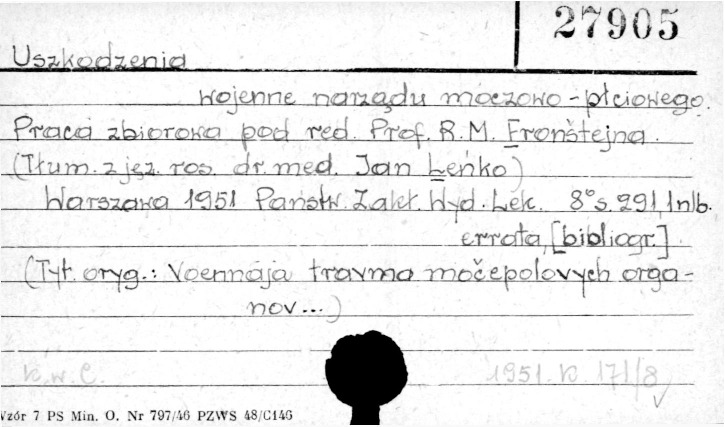 27905
Uszkodzenia
wojenne narządu moczowo-płciowego.
Praca zbiorowa pod red. Prof. R.M. Fronštejna.
(Tłum. z jęz. ros. dr. med. Jan Leńko)
Warszawa 1951 Państw. Zakł. Wyd. Lek. 8° s. 291, 1nlb.
errata, [bibliogr.]
(Tyt. oryg.: Voennaja travma močepolovych orga-
nov...)
K. w. C. 1951. K 171/8
Wzór 7 PS Min. O. Nr 797/46 PZWS 48/C146